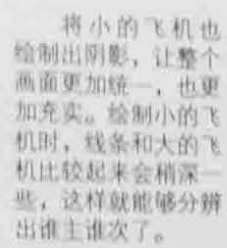 将小的飞机也
绘制出阴影，让整个
画面更加统一，也更
加充实。绘制小的飞
机时，线条和大的飞
机比较起来会稍深一
些，这样就能够分辨
出谁主谁次了。